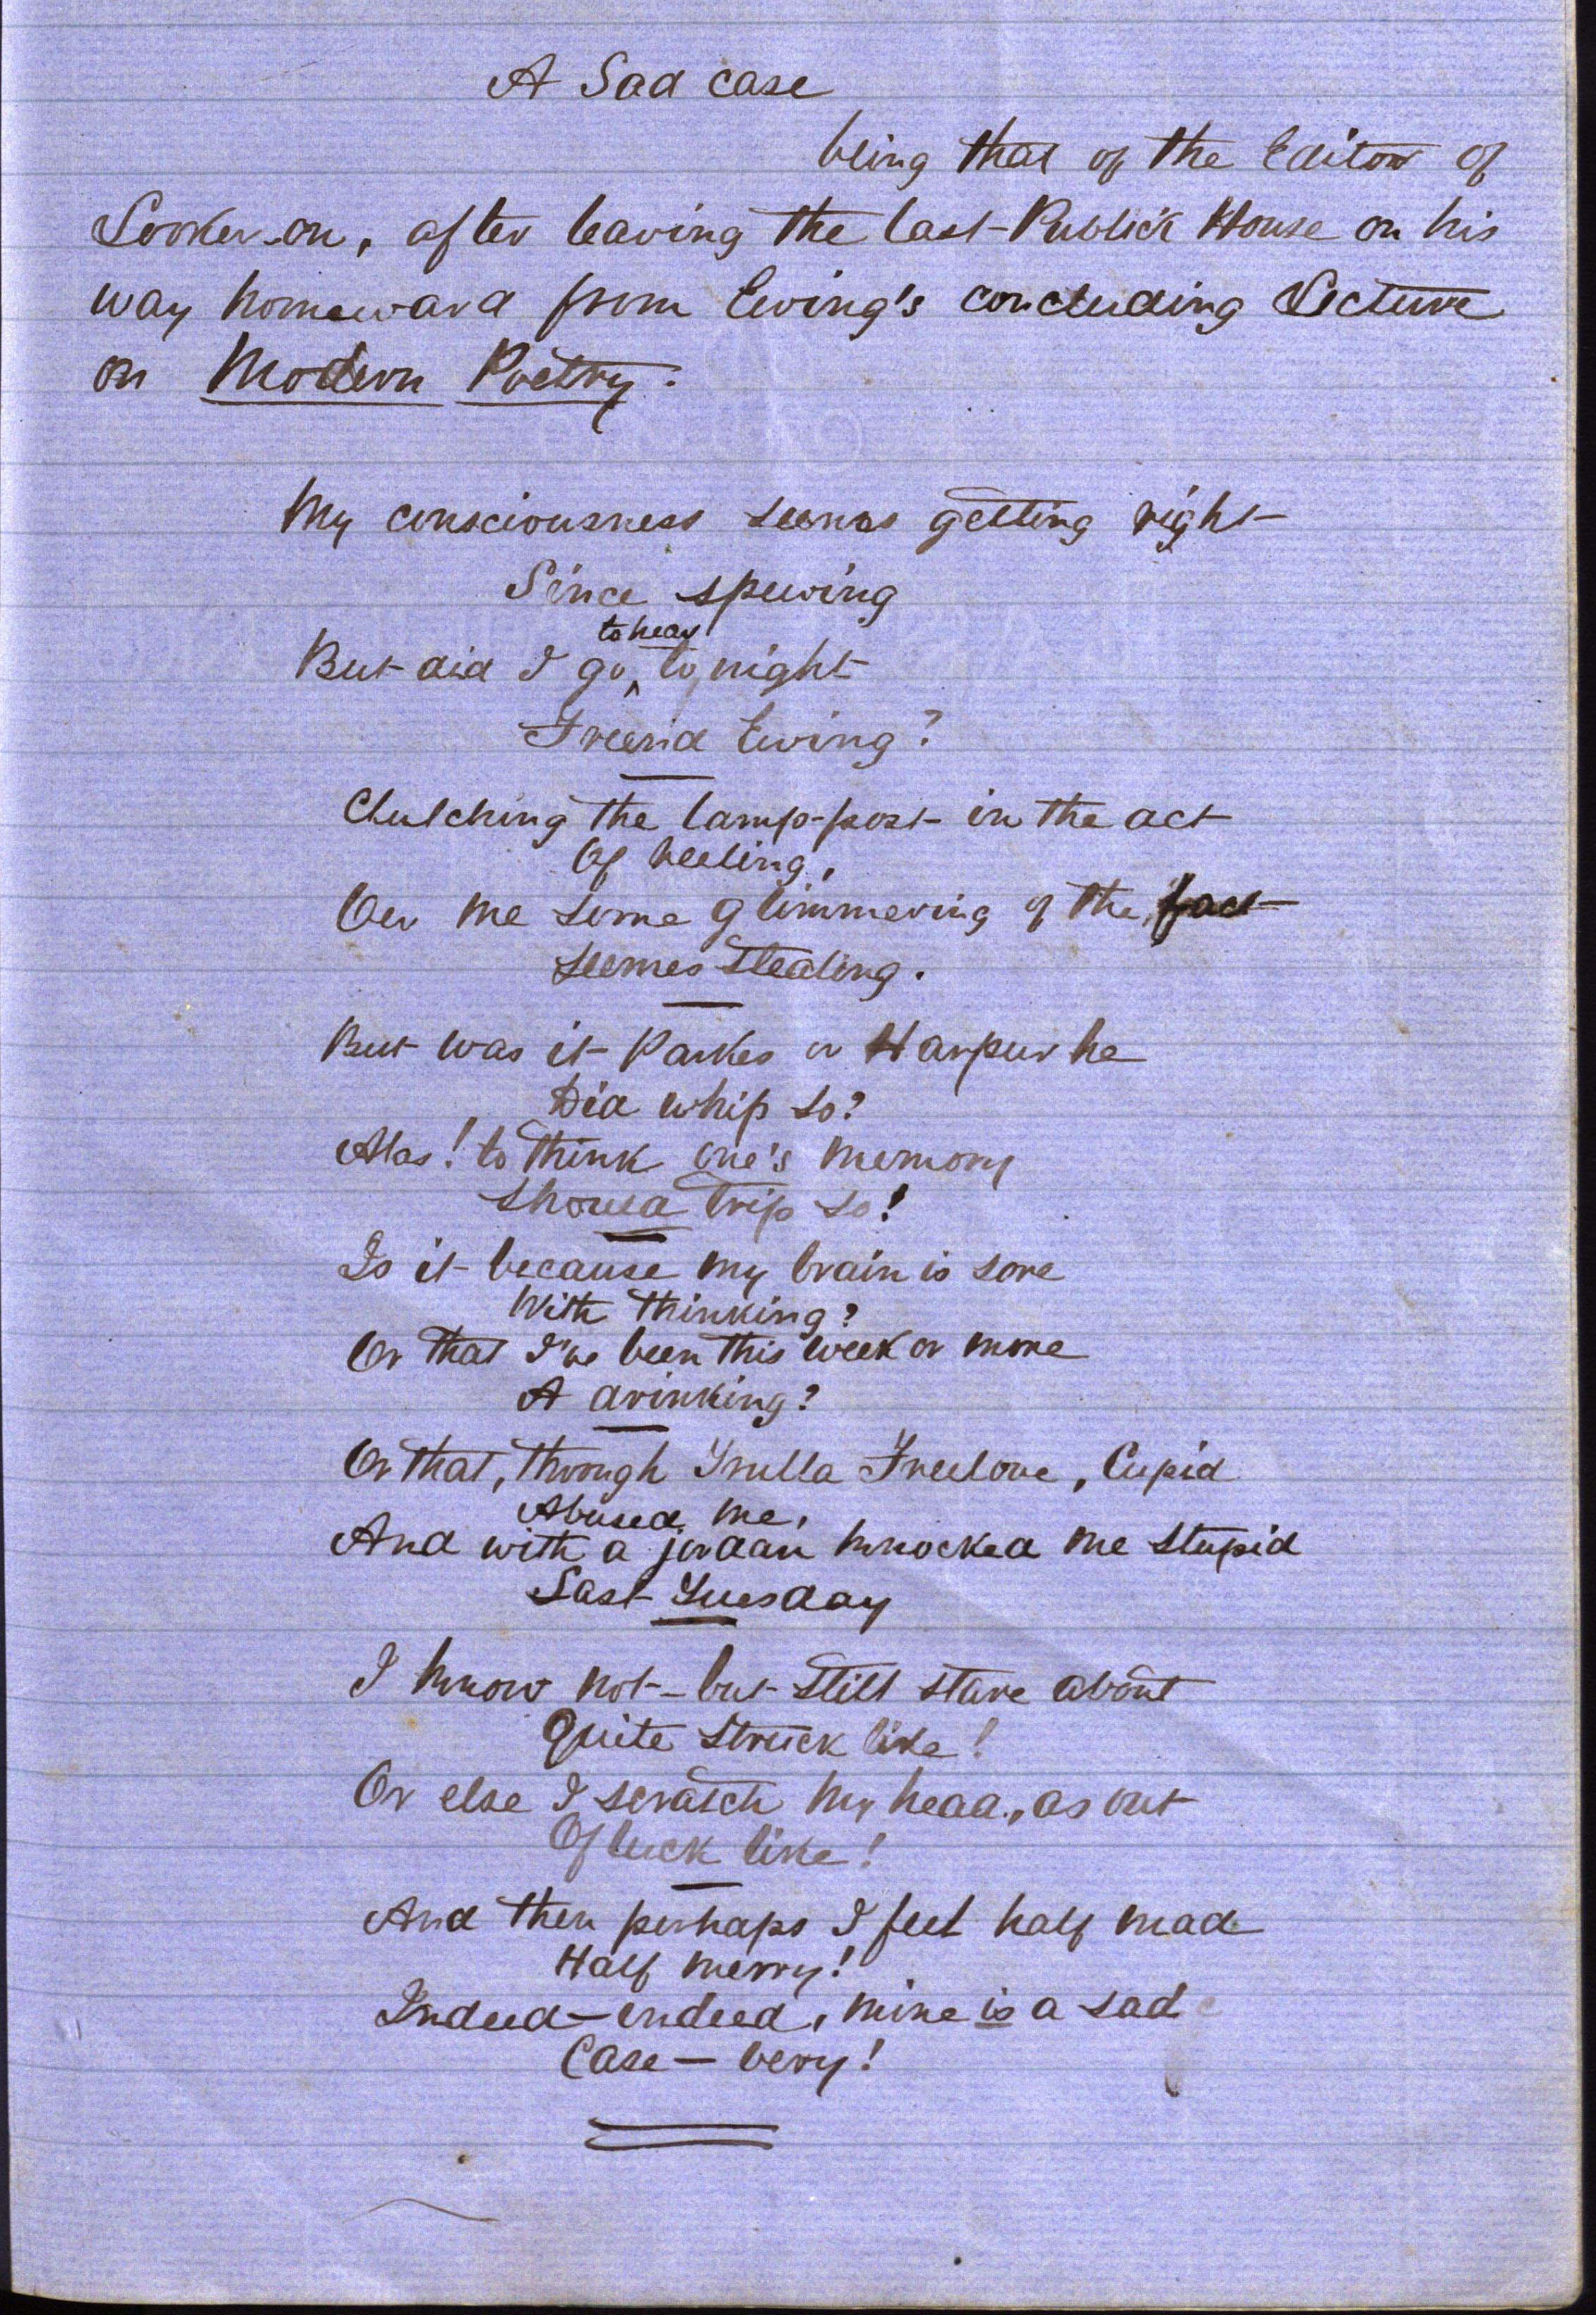 A Sad case
being that of the Editor of
Looker-on, after leaving the last Publick House on his
way homeward from Ewing's concluding Lecture
on Modern Poetry.
My consciousness seems getting right
Since spewing
to hear
But did I go to night
Freend Ewing?
Clutching the lamp-post in the act
Of heeling,
Oer me some glimmering of the fact
Seemes stealing.
But was it Parkes or Harpur he
Did whip so?
Alas! to think one's memory
Should trip so!
Is it because my brain is sore
With thinking?
Or that I've been this week or more
A drinking?
Or that, through Freelove, Cupid
Abused me,
And with a jordan knocked me stupid
Last Tuesday
I know not - but still stare about
Quite struck like!
Or else I scratch my head, as out
Of luck like!
And then perhaps I feel half mad
Half merry!
Indeed - indeed, mine is a sad
Case — very!